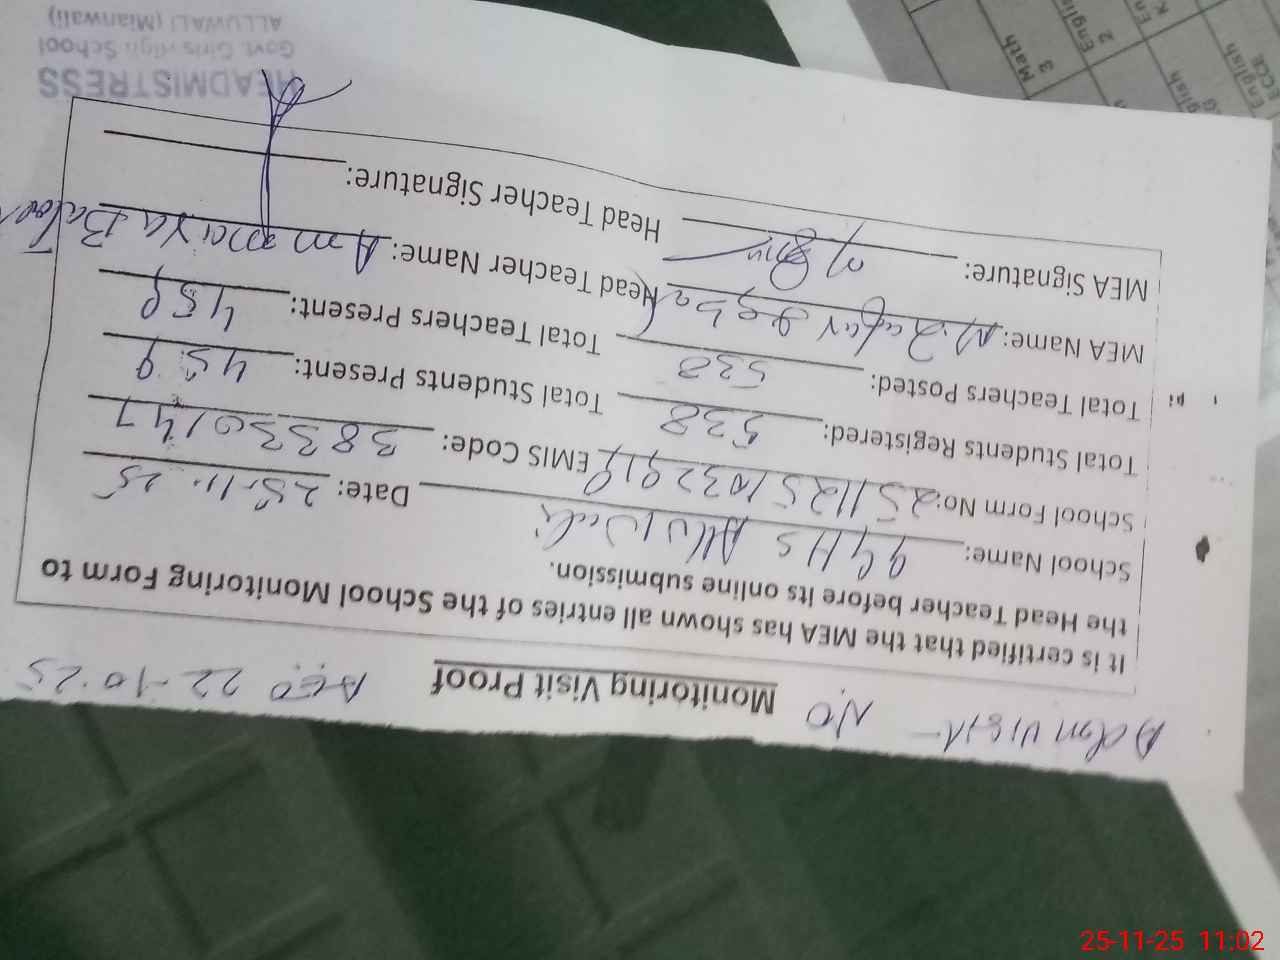 Adm visit - NO Monitoring Visit Proof AEO 22-10-25
It is certified that the MEA has shown all entries of the School Monitoring Form to
the Head Teacher before Its online submission.
School Name: GGHS Alluwali Date: 25-11-25
School Form No: EMIS Code: 38330147
Total Students Registered: 538 Total Students Present: 459
Total Teachers Posted: 538 Total Teachers Present: 459
MEA Name: M. Zafar Iqbal Head Teacher Name: Ammaiya Batool
MEA Signature: Head Teacher Signature:
HEADMISTRESS
Govt. Girls High School
ALLUWALI (Mianwali)
Math
3
English
2
English
ECCE
25-11-25 11:02